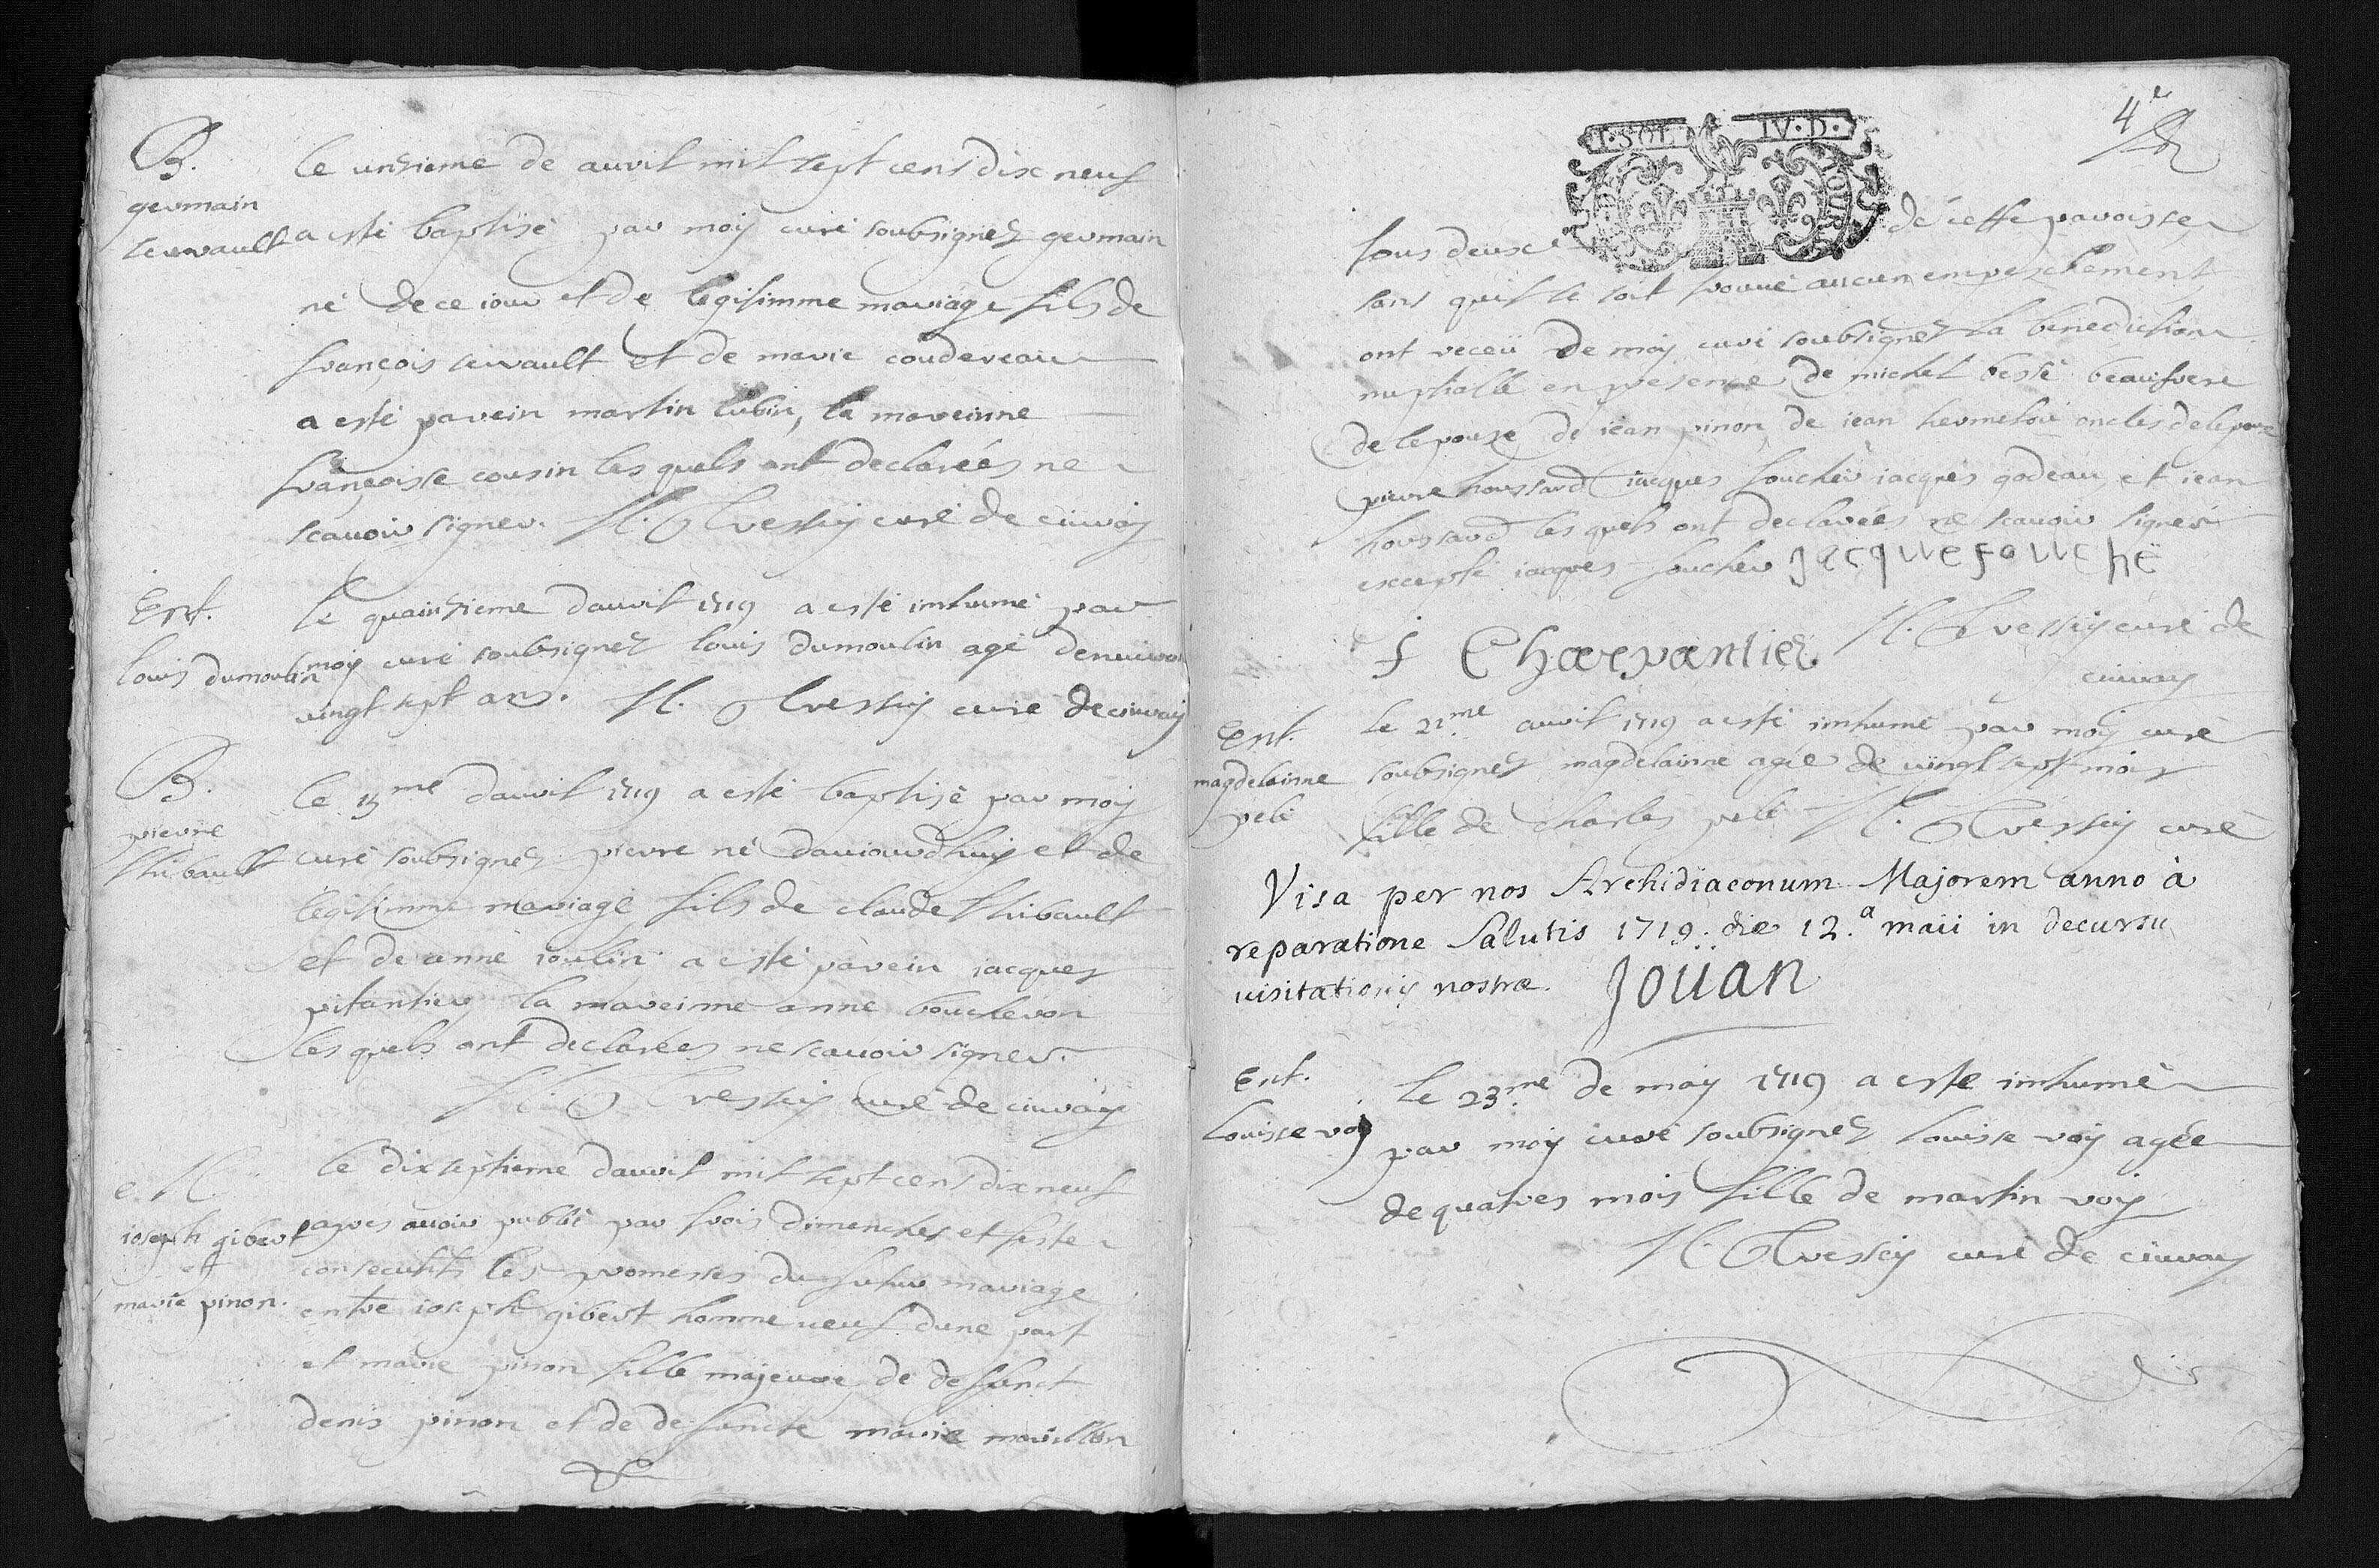 B.
germain
servault
le unzieme de auvil mil sept cens dix neuf
a esté baptisé par moy curé soubsignez germain
né de ce iour et de legitimme mariage fils de
françois servault et de marie coudereau
a esté parein martin lubin, la mareinne
françoisse cousin les quels ont declareés ne
scauoir signer. M. Tressiy curé de ciuray
Ent.
louis dumoulin
le quainzieme dauvil 1719 a esté inhumé par
moy curé soubsignez louis dumoulin agé denuiron
vingt sept ans. M. Tressiy curé de ciuray
B.
pierre
thibault
le 15me dauvil 1719 a esté baptisé par moy
curé soubsignez pierre né dauiourdhuy et de
legitimme mariage fils de claude thibault
et de anne ioulin a esté parein iacques
pitantier la mareinne anne boucheron
les quels ont declareés ne scauoir signer.
M. Tressiy curé de ciuray
M
ioseph gibert
et
marie pinon.
le dix septieme dauvil mil sept cens dix neuf
apres auoir publié par trois dimenches et feste
consecutifs les promesses du futur mariage
entre ioseph gibert homme ueuf dune part
et marie pinon fille majeure de defunct
denis pinon et de defuncte marie
4e
I·SOL IV·D·
TOURS
tous deux de cette paroisse
sans quil se soit trouué aucun empeschement
ont receü de moy curé soubsignez la benediction
nuptialle en presence de michel besté beaufrere
de lepouze de iean pinon, de iean oncles de lepouze
pierre houssard iacques foucher iacques godeau et iean
houssard les quels ont declareés ne scauoir signer
excepté iacques foucher jacque fouchë
f Charpantier M. Tressiy curé de
ciuray
Ent.
magdelainne
pelé
le 21me auvil 1719 a esté inhumé par moy curé
soubsignez magdelainne agée de uingt sept mois
fille de charles pelé M. Tressiy curé
Visa per nos Archidiaconum Majorem anno à
reparatione Salutis 1719. die 12.a maii in decursu
visitationis nostræ. Joüan
Ent.
Louisse voy
le 23me de may 1719 a este inhumé
par moy curé soubsignez louisse voy agée
de quatres mois fille de martin voy
M. Tressiy curé de ciuray